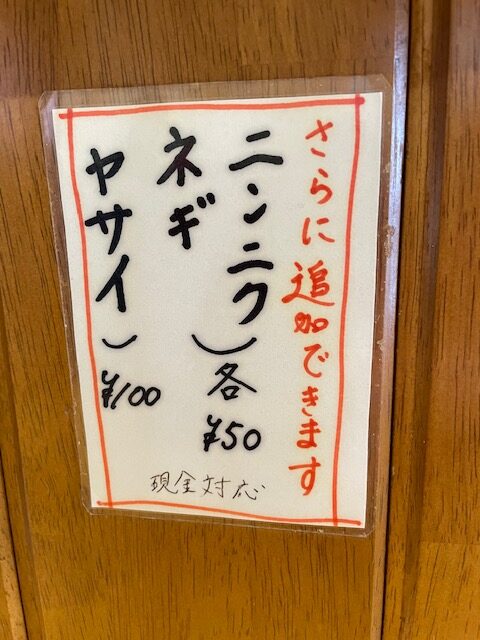 さらに追加できます
ニンニク
ネギ
)各¥50
ヤサイ)¥100
現金対応